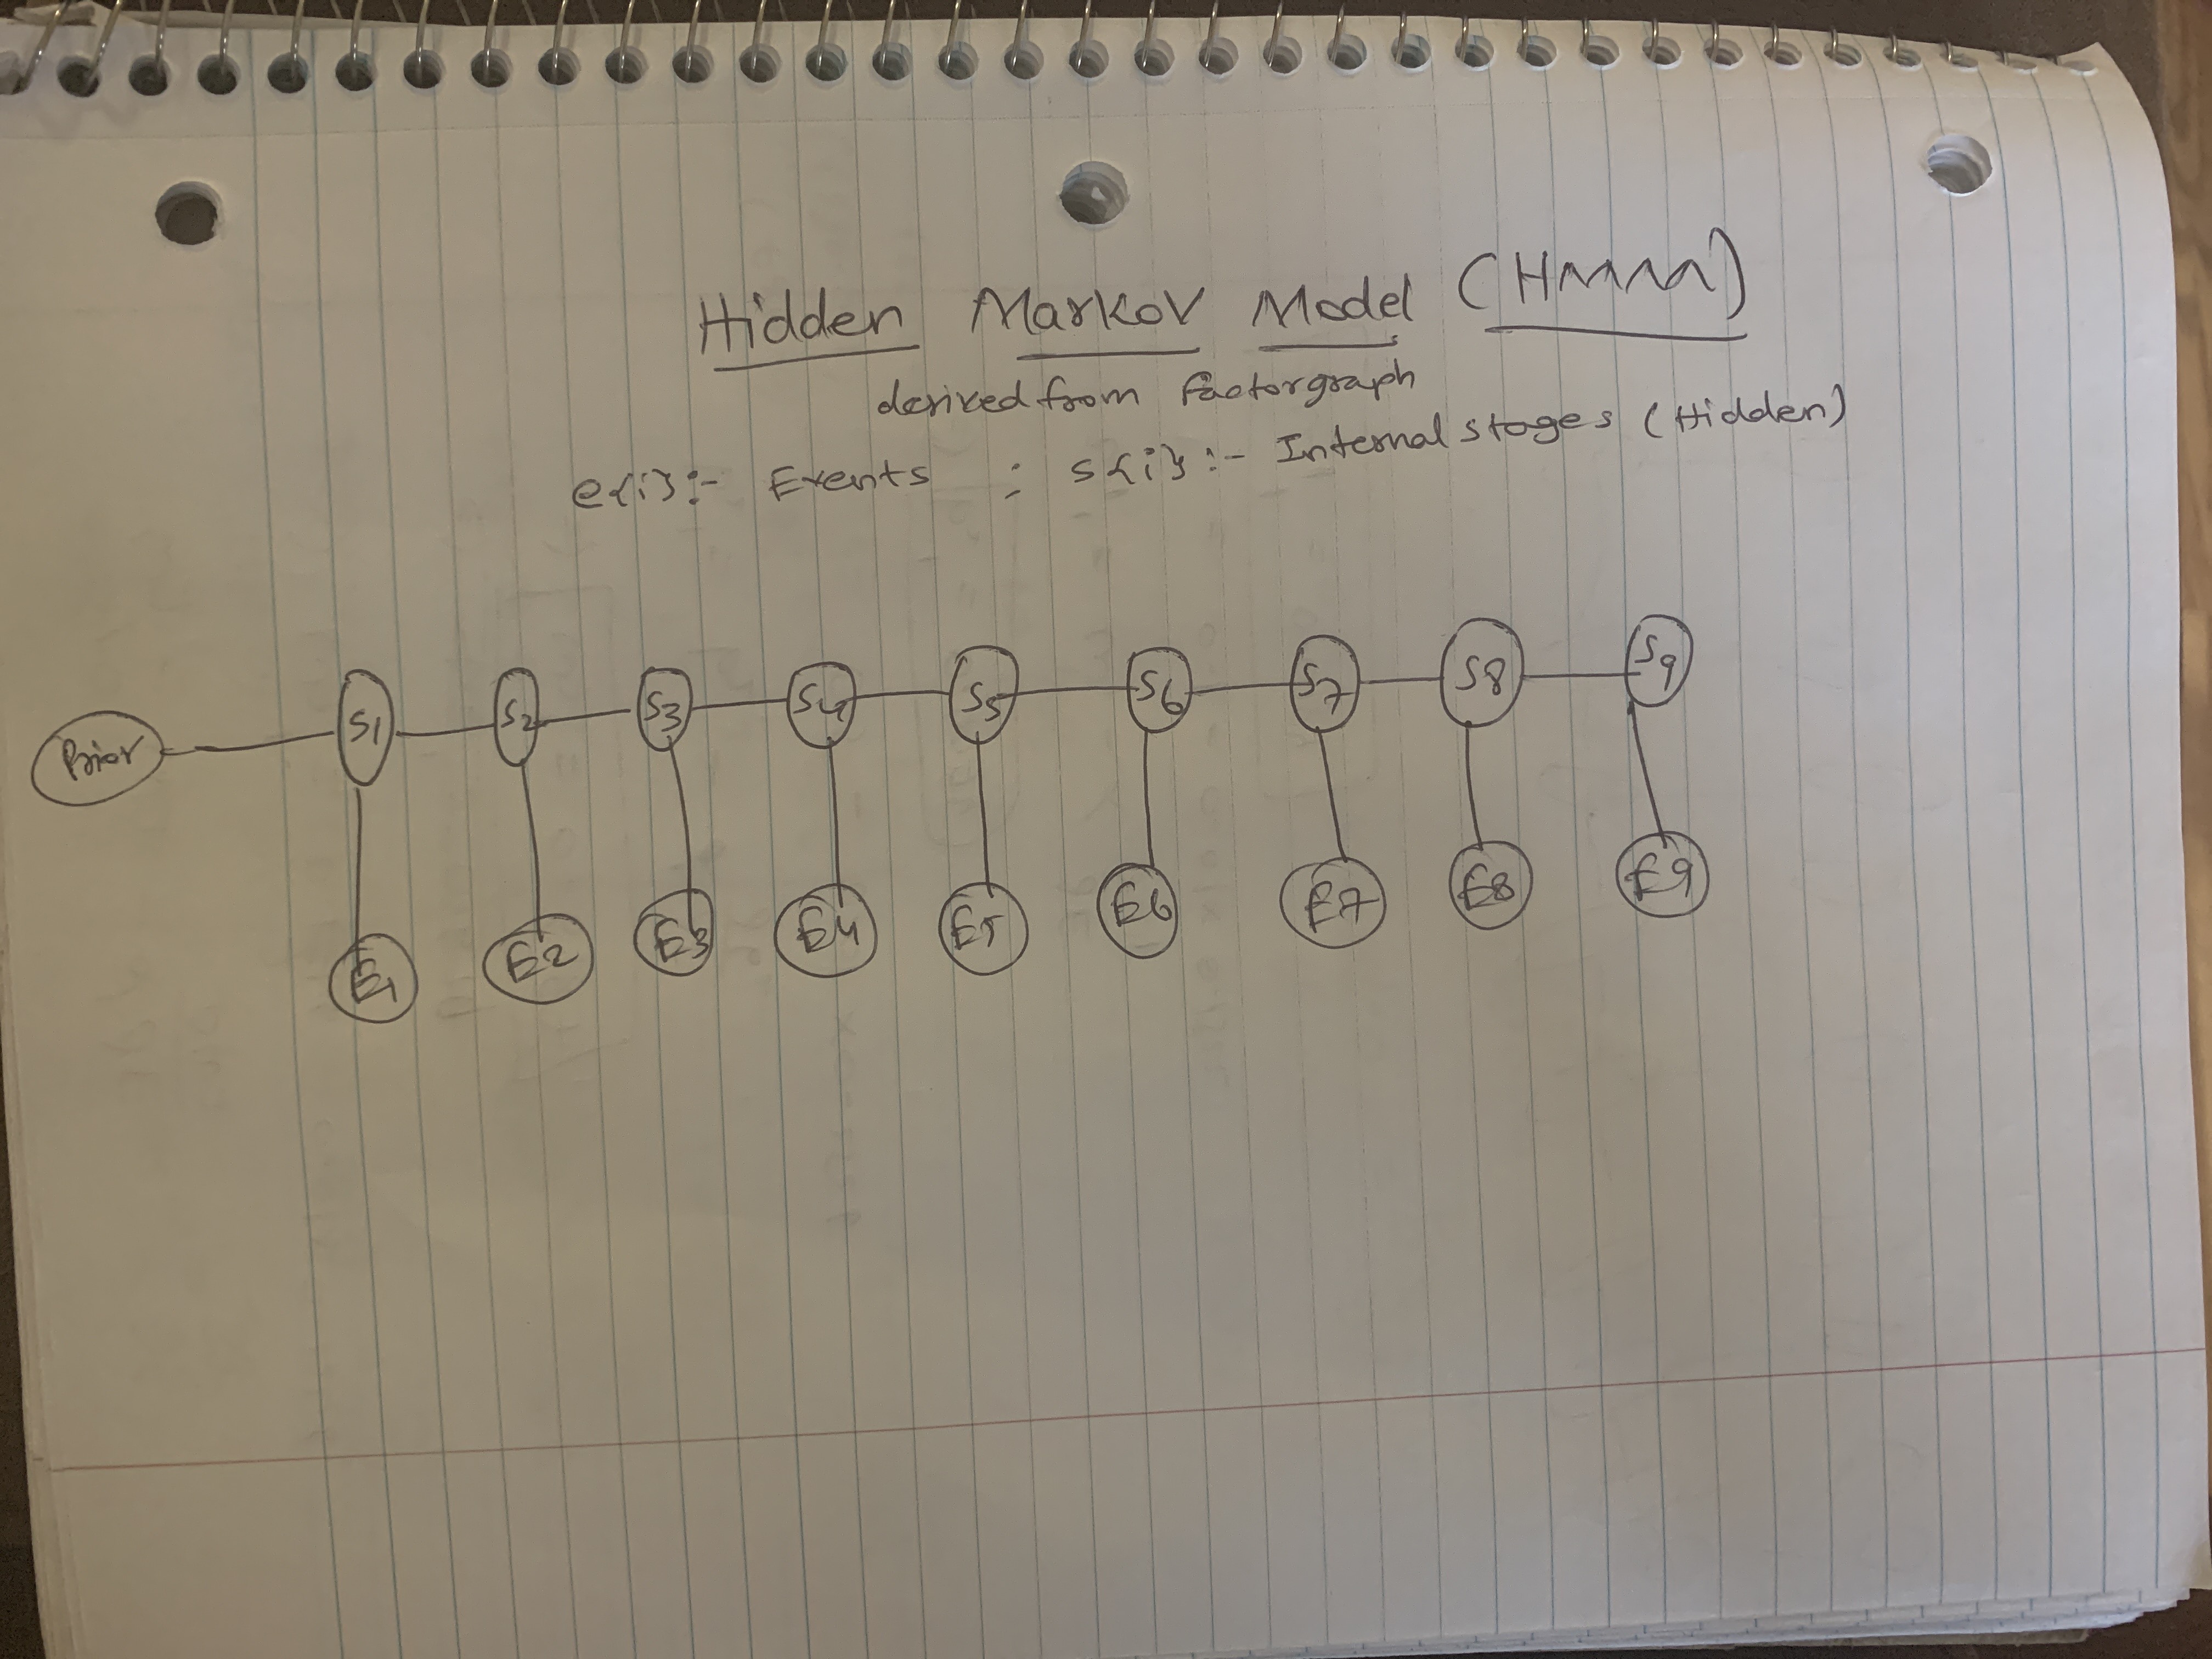 Hidden Markov Model (HMM)
derived from factorgraph
e{i} :- Events ; s{i} :- Internal stages (Hidden)
Prior
S1 S2 S3 S4 S5 S6 S7 S8 S9
E1 E2 E3 E4 E5 E6 E7 E8 E9